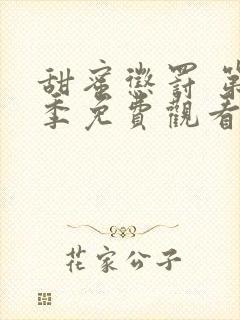 甜蜜懲罰 第
季免費觀看
花家公子